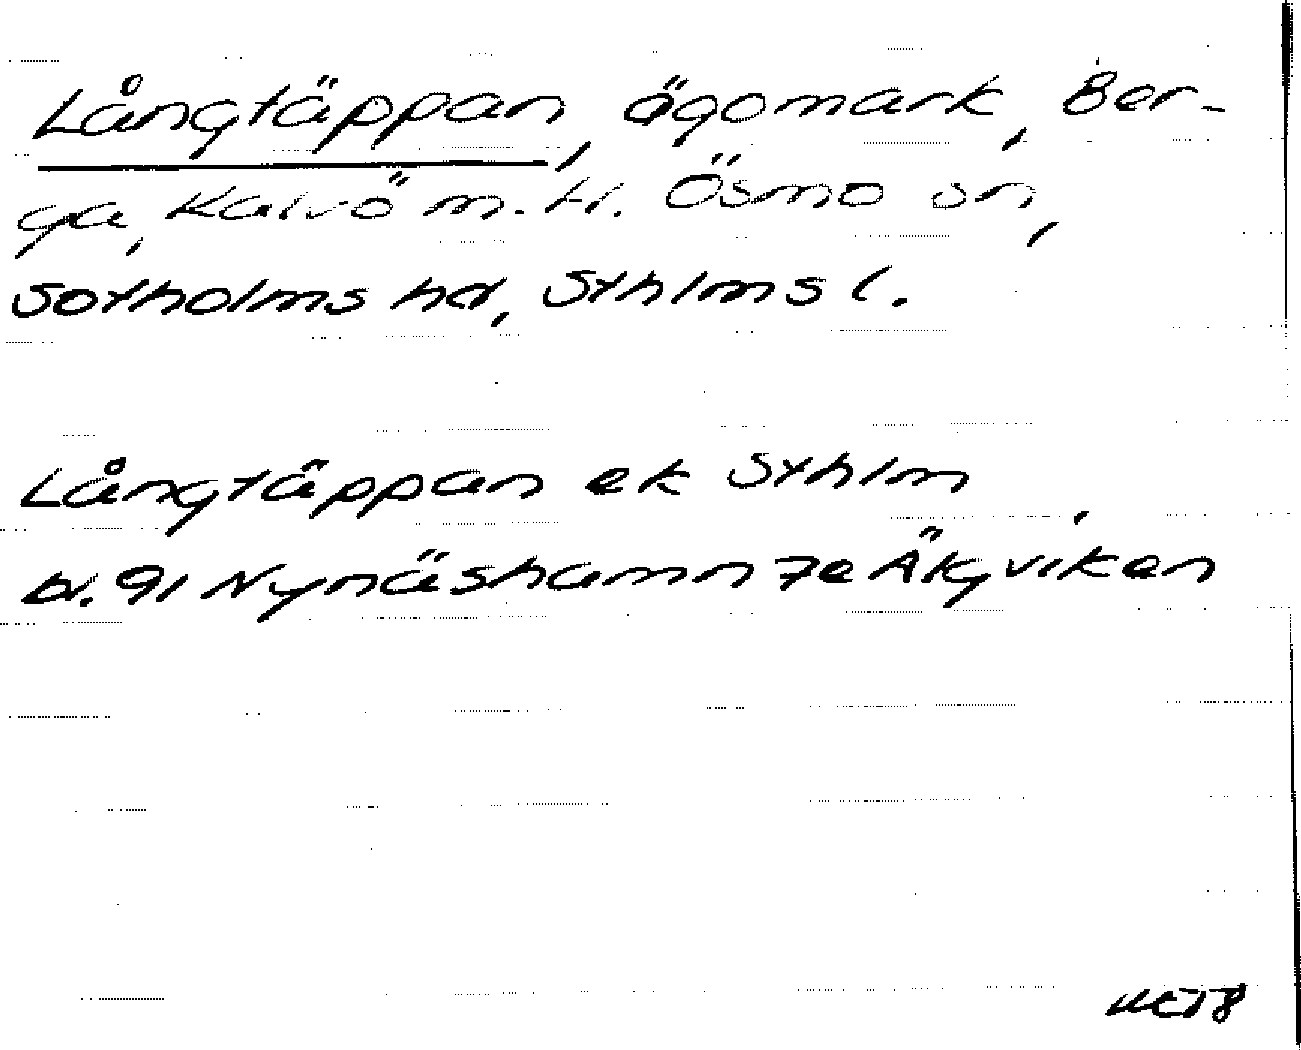 Långtäppan, ägomark, Ber-
ga, Kalvö m.fl. Ösmo sn,
Sotholms hd, Sthlms l.
Långtäppan ek Sthlm,
bl. 91 Nynäshamn 7e Älgviken